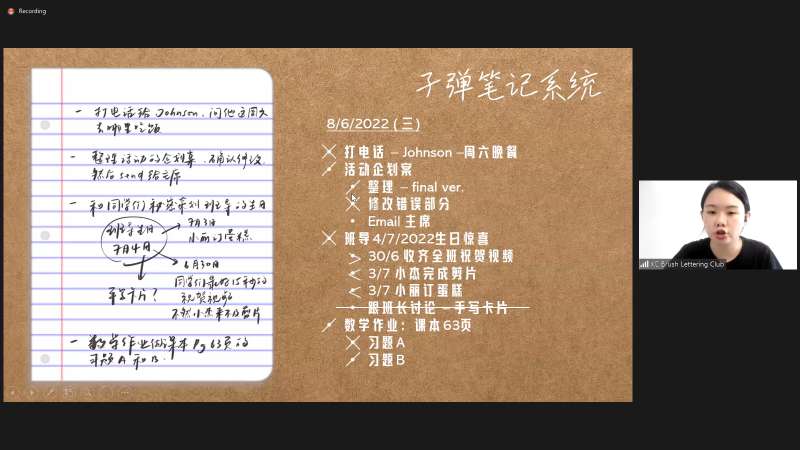 Recording
子弹笔记系统
- 打电话给 Johnson, 问他这周六
去哪里吃饭
- 整理活动的企划案, 确认修改,
然后 send 给主席
- 和同学们
班导生日
7月4日
7月3日
小丽订蛋糕
6月30日
祝贺视频
手写卡片?
- 数学作业做课本 Pg 63页的
习题A 和 B.
8/6/2022 (三)
打电话 – Johnson –周六晚餐
活动企划案
整理 – final ver.
修改错误部分
• Email 主席
班导 4/7/2022生日惊喜
> 30/6 收齐全班祝贺视频
< 3/7 小杰完成剪片
< 3/7 小丽订蛋糕
• 跟班长讨论 – 手写卡片
数学作业：课本 63页
习题 A
习题 B
KC Brush Lettering Club